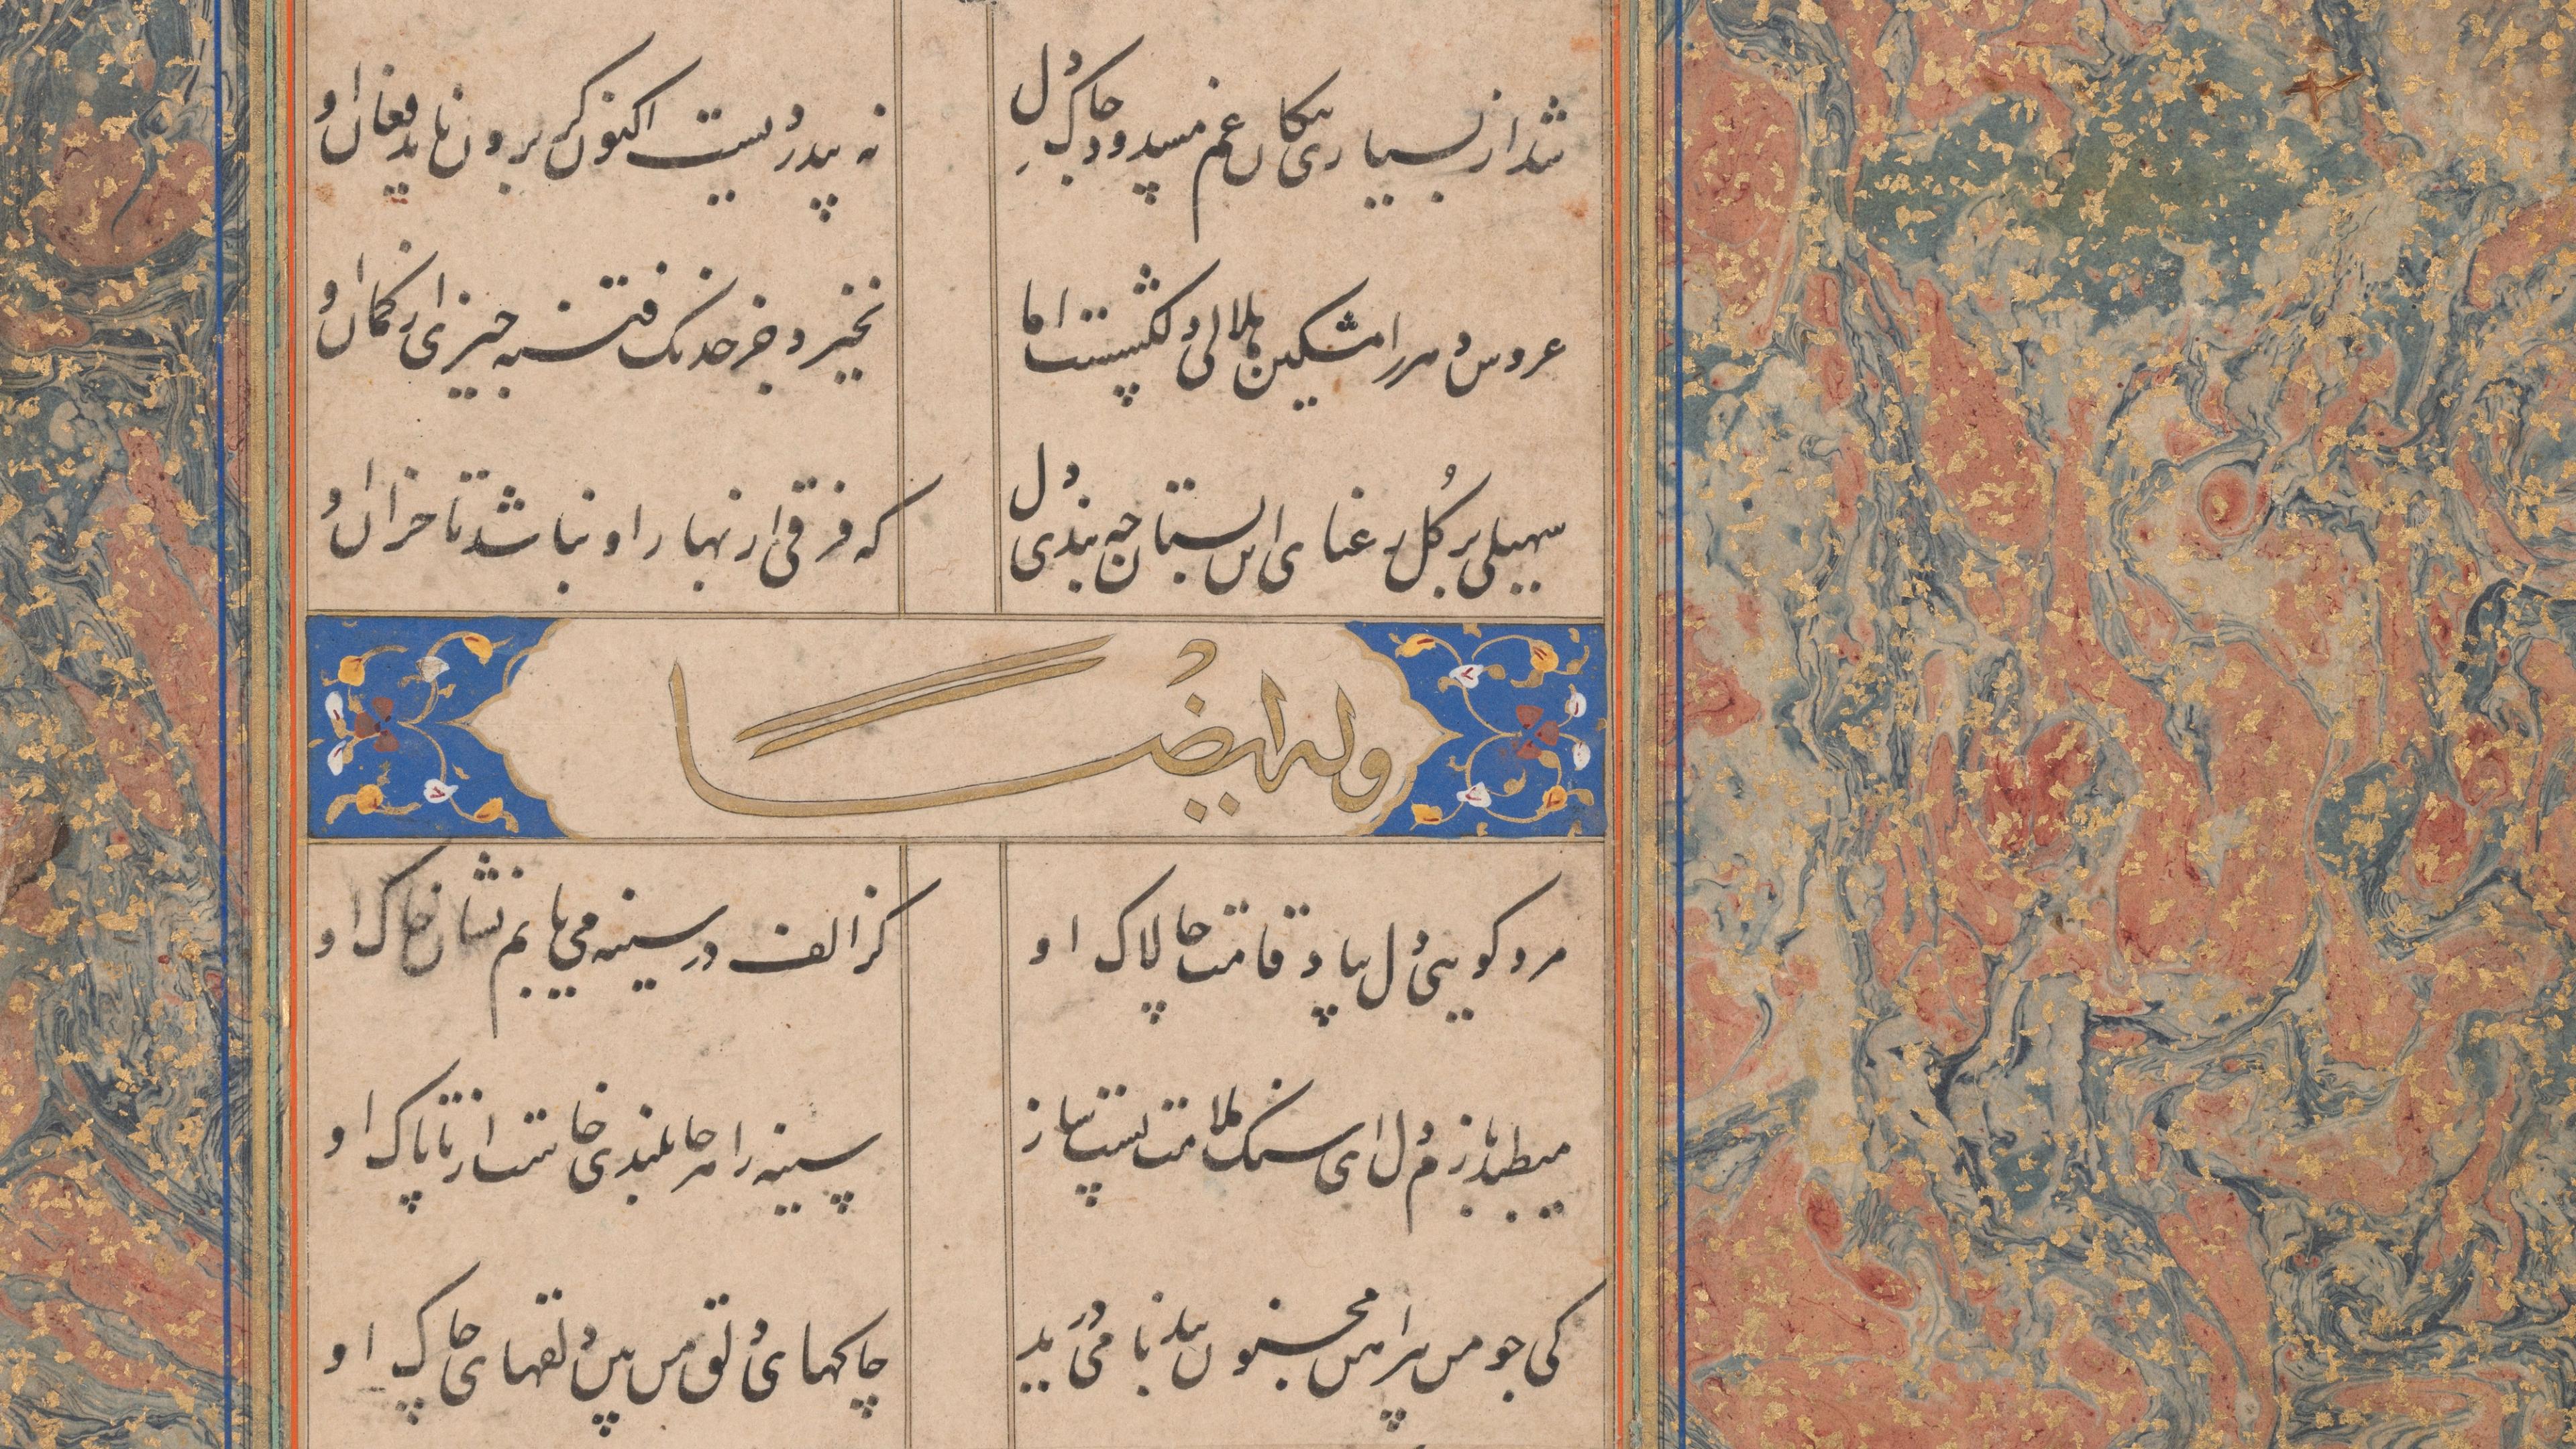 شد از بسیاری پیکان غم مسدود چاک دل
نه پندارست اکنون کز برون ناید فغان او
عروس دهر را مشکین هلالی دلکشست اما
نخیزد جز خدنک فتنه چیزی از کمان او
سهیلی بر کل رعنای این بستان چه بندی دل
که فرقی از بهار او نباشد تا خزان او
وله ایضا
مرد کویی دل بیاد قامت چالاک او
کز الف در سینه می یابم نشان خاک او
میطپد بازم دل ای سنک ملامت پست ساز
سینه را هر جا بلندی خاست از ناپاک او
کی چو من پیراهن مجنون بدنیا می درید
چاکهای دلق من بین دلقهای چاک او